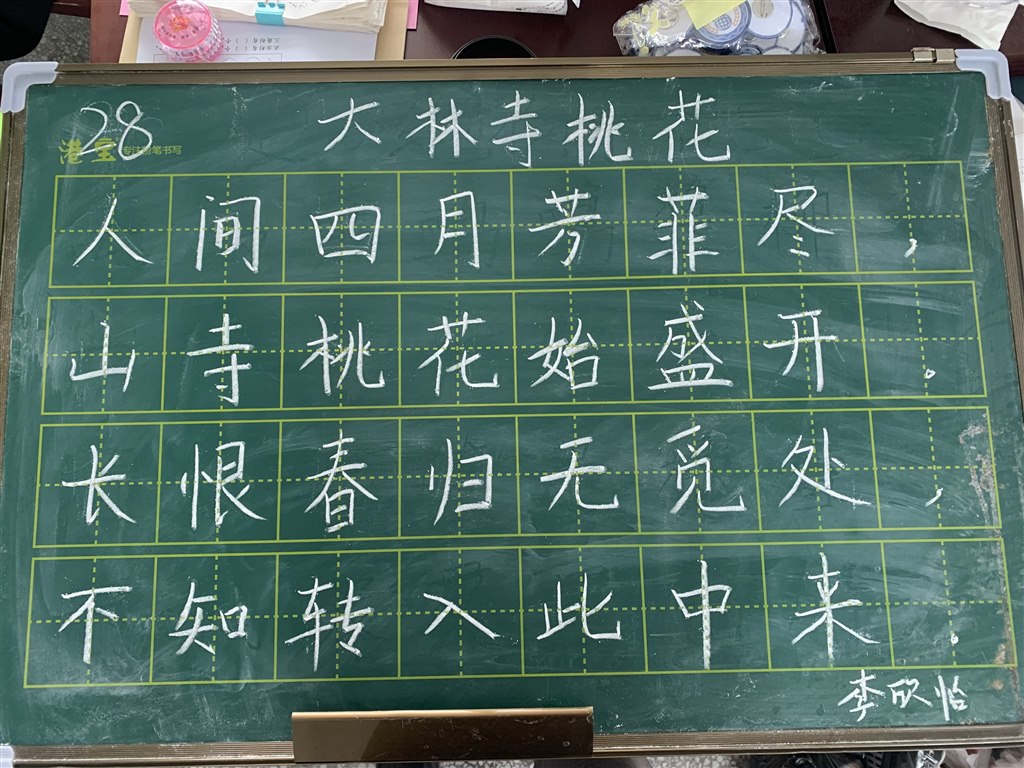 28
大林寺桃花
港宝 专注粉笔书写
人间四月芳菲尽，
山寺桃花始盛开。
长恨春归无觅处，
不知转入此中来。
李欣怡